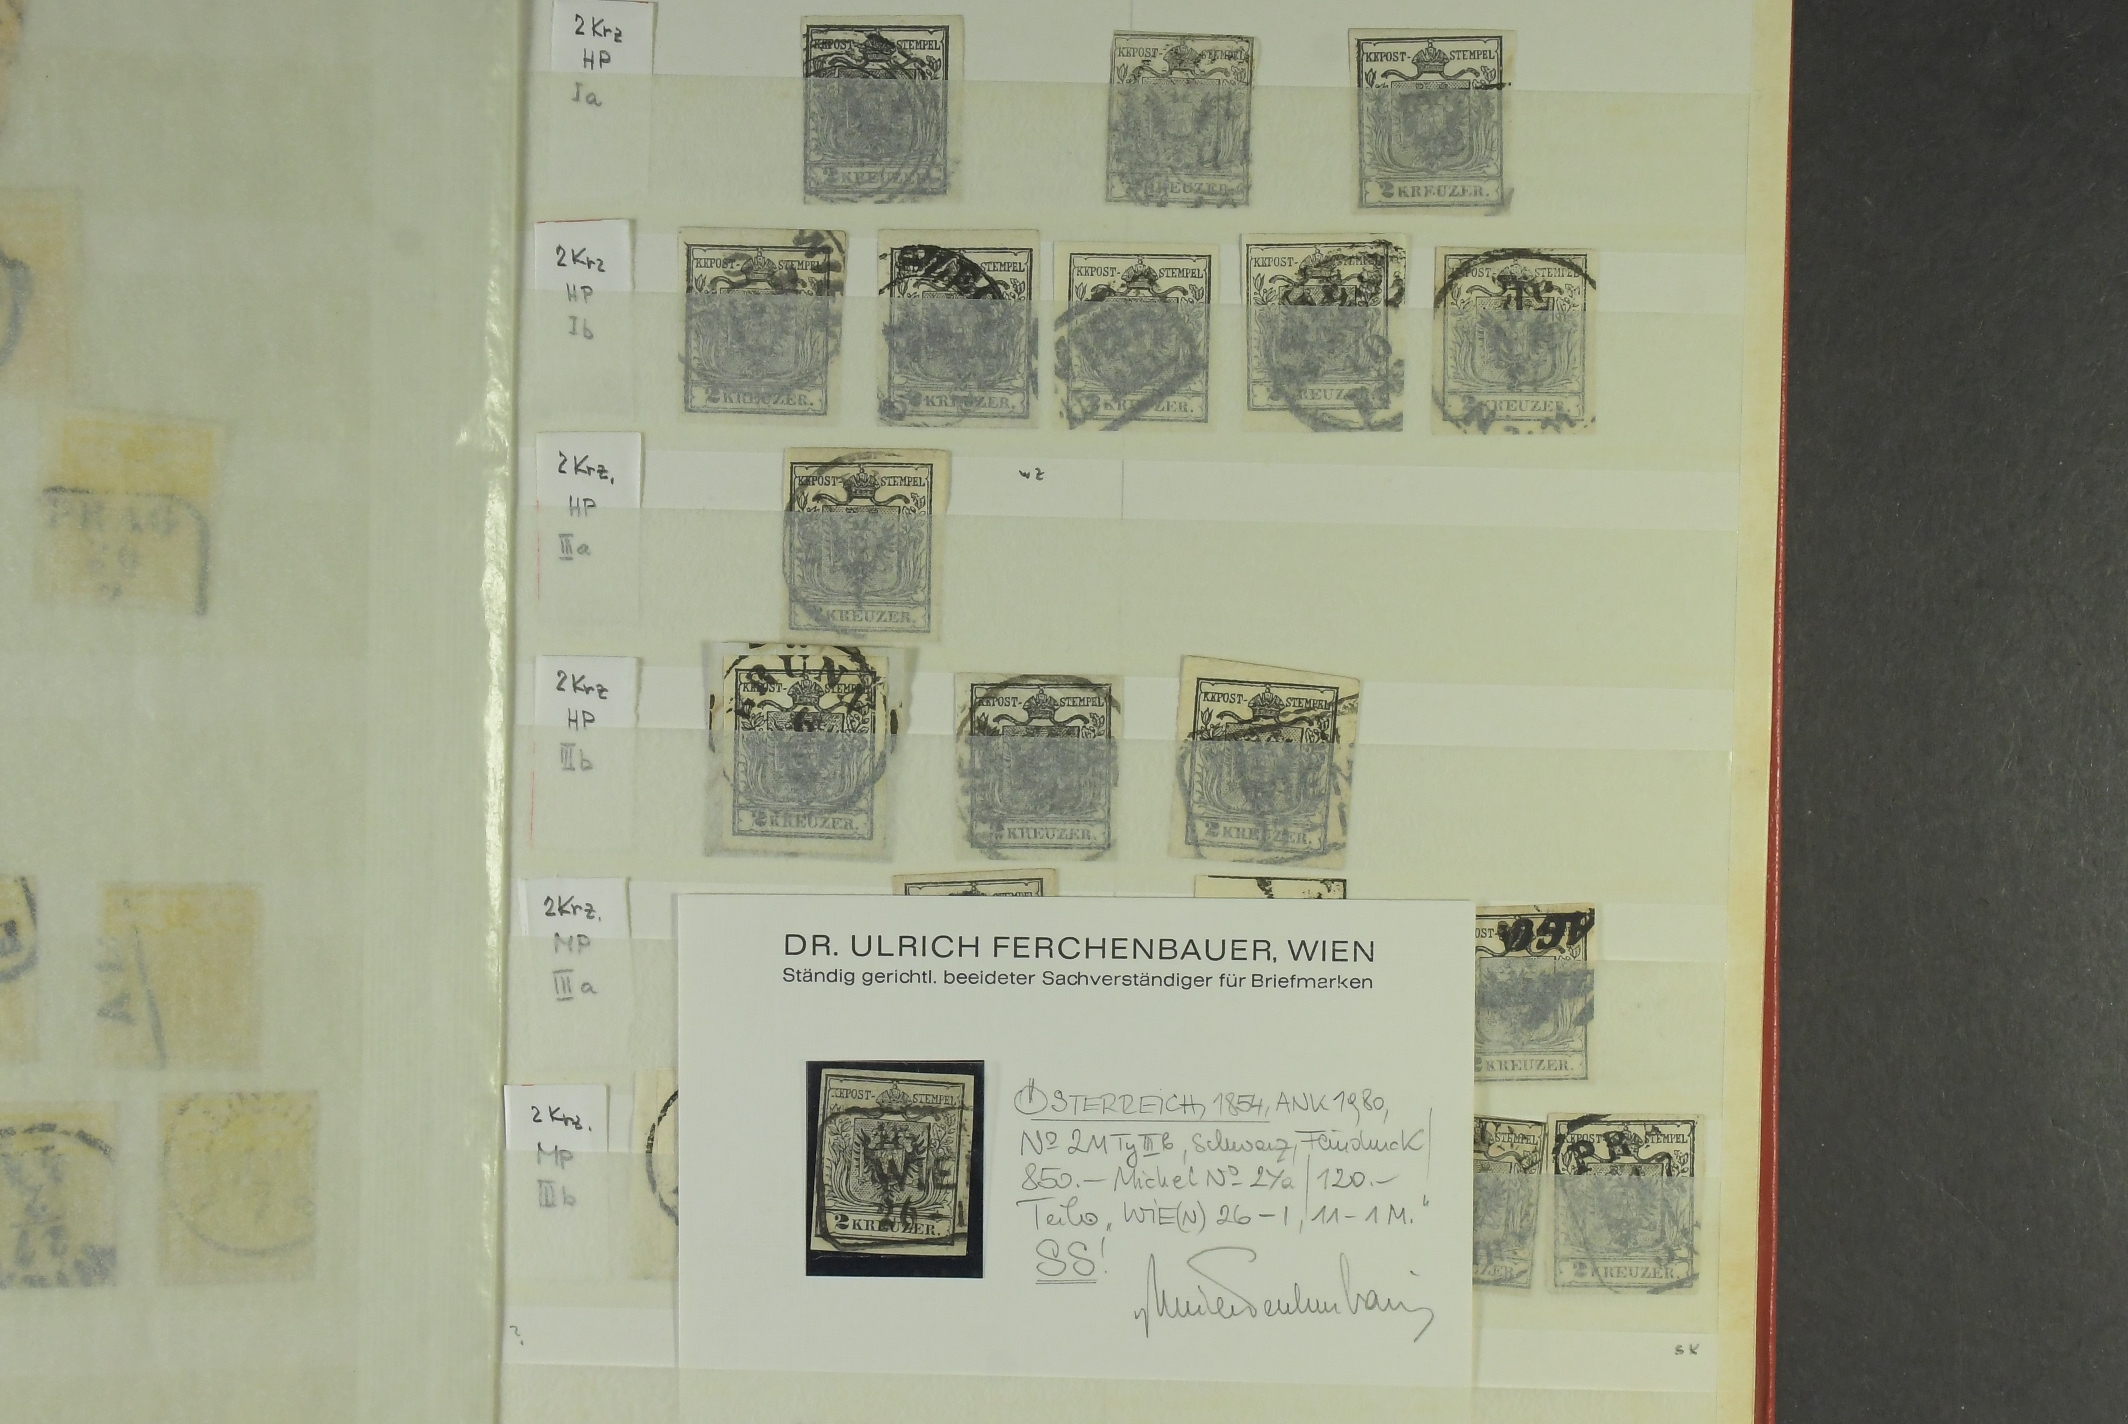 2 Krz
HP
Ia
KKPOST- STEMPEL
2 KREUZER.
KKPOST- STEMPEL
KREUZER.
KKPOST- STEMPEL
2 KREUZER.
2 Krz
HP
Ib
KKPOST- STEMPEL
2 KREUZER.
STEMPEL
KREUZER.
KKPOST- STEMPEL
KREUZER.
KKPOST-
REUZ
POST- STEMPEL
2 KREUZER.
2 Krz.
HP
IIIa
KKPOST- STEMPEL
KREUZER.
wz
PRAG
2 Krz
HP
IIIb
BRÜNN
KKPOST- STEMPEL
2 KREUZER.
KKPOST- STEMPEL
2 KREUZER.
KKPOST- STEMPEL
2 KREUZER.
2 Krz.
MP
IIIa
2 KREUZER.
DR. ULRICH FERCHENBAUER, WIEN
Ständig gerichtl. beeideter Sachverständiger für Briefmarken
KKPOST- STEMPEL
WIE
26
2 KREUZER.
ÖSTERREICH, 1854, ANK 1980,
No 2M Ty IIIb, schwarz, Feindruck /
850.- Michel No 2Ya / 120.-
Teilo „WIE(N) 26-1, 11-1M."
SS!
2 Krz.
MP
IIIb
STEMPEL
UZER.
KKPOST- STEMPEL
PR
2 KREUZER.
?
SK